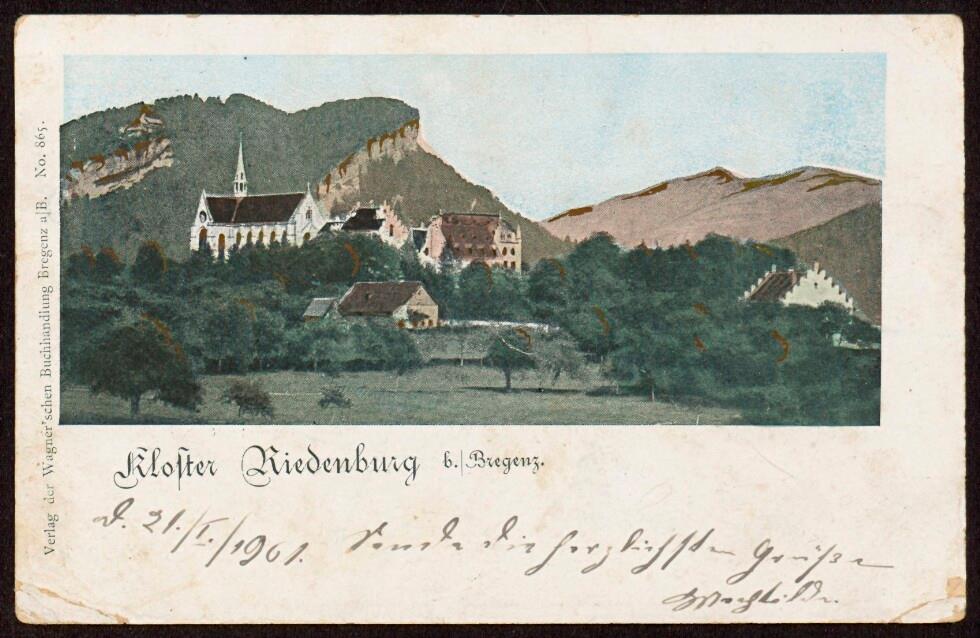 Verlag der Wagner'schen Buchhandlung Bregenz a|B. No. 865.
Kloster Riedenburg b./Bregenz.
d. 21./I./1901. Sende die herzlichsten Grüße
Mechtilde.